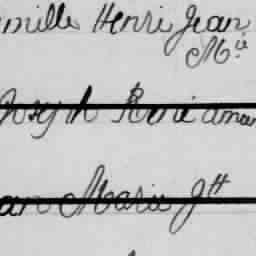 mille Henri Jean
Mie
Joseph René amé
an Marie Jh